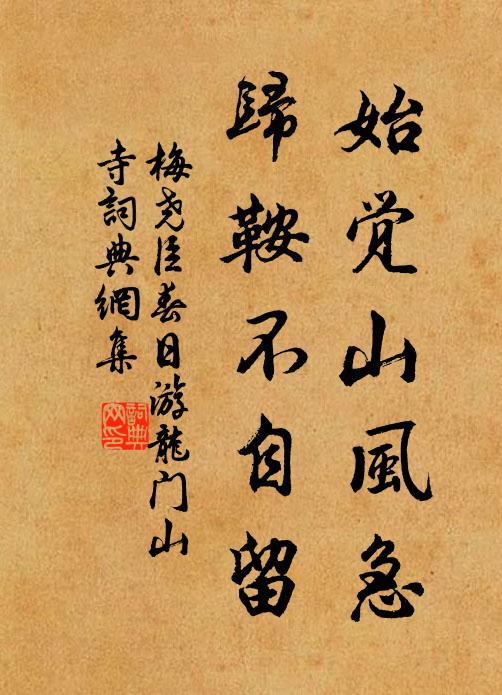 始觉山風急
歸鞍不自留
梅尧臣春日游龍门山
寺詞典網集
詞典網印